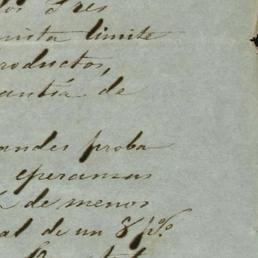 los Tres
limite
roductos,
antía de
andes proba
esperansas
de menos
al de un 8 p%